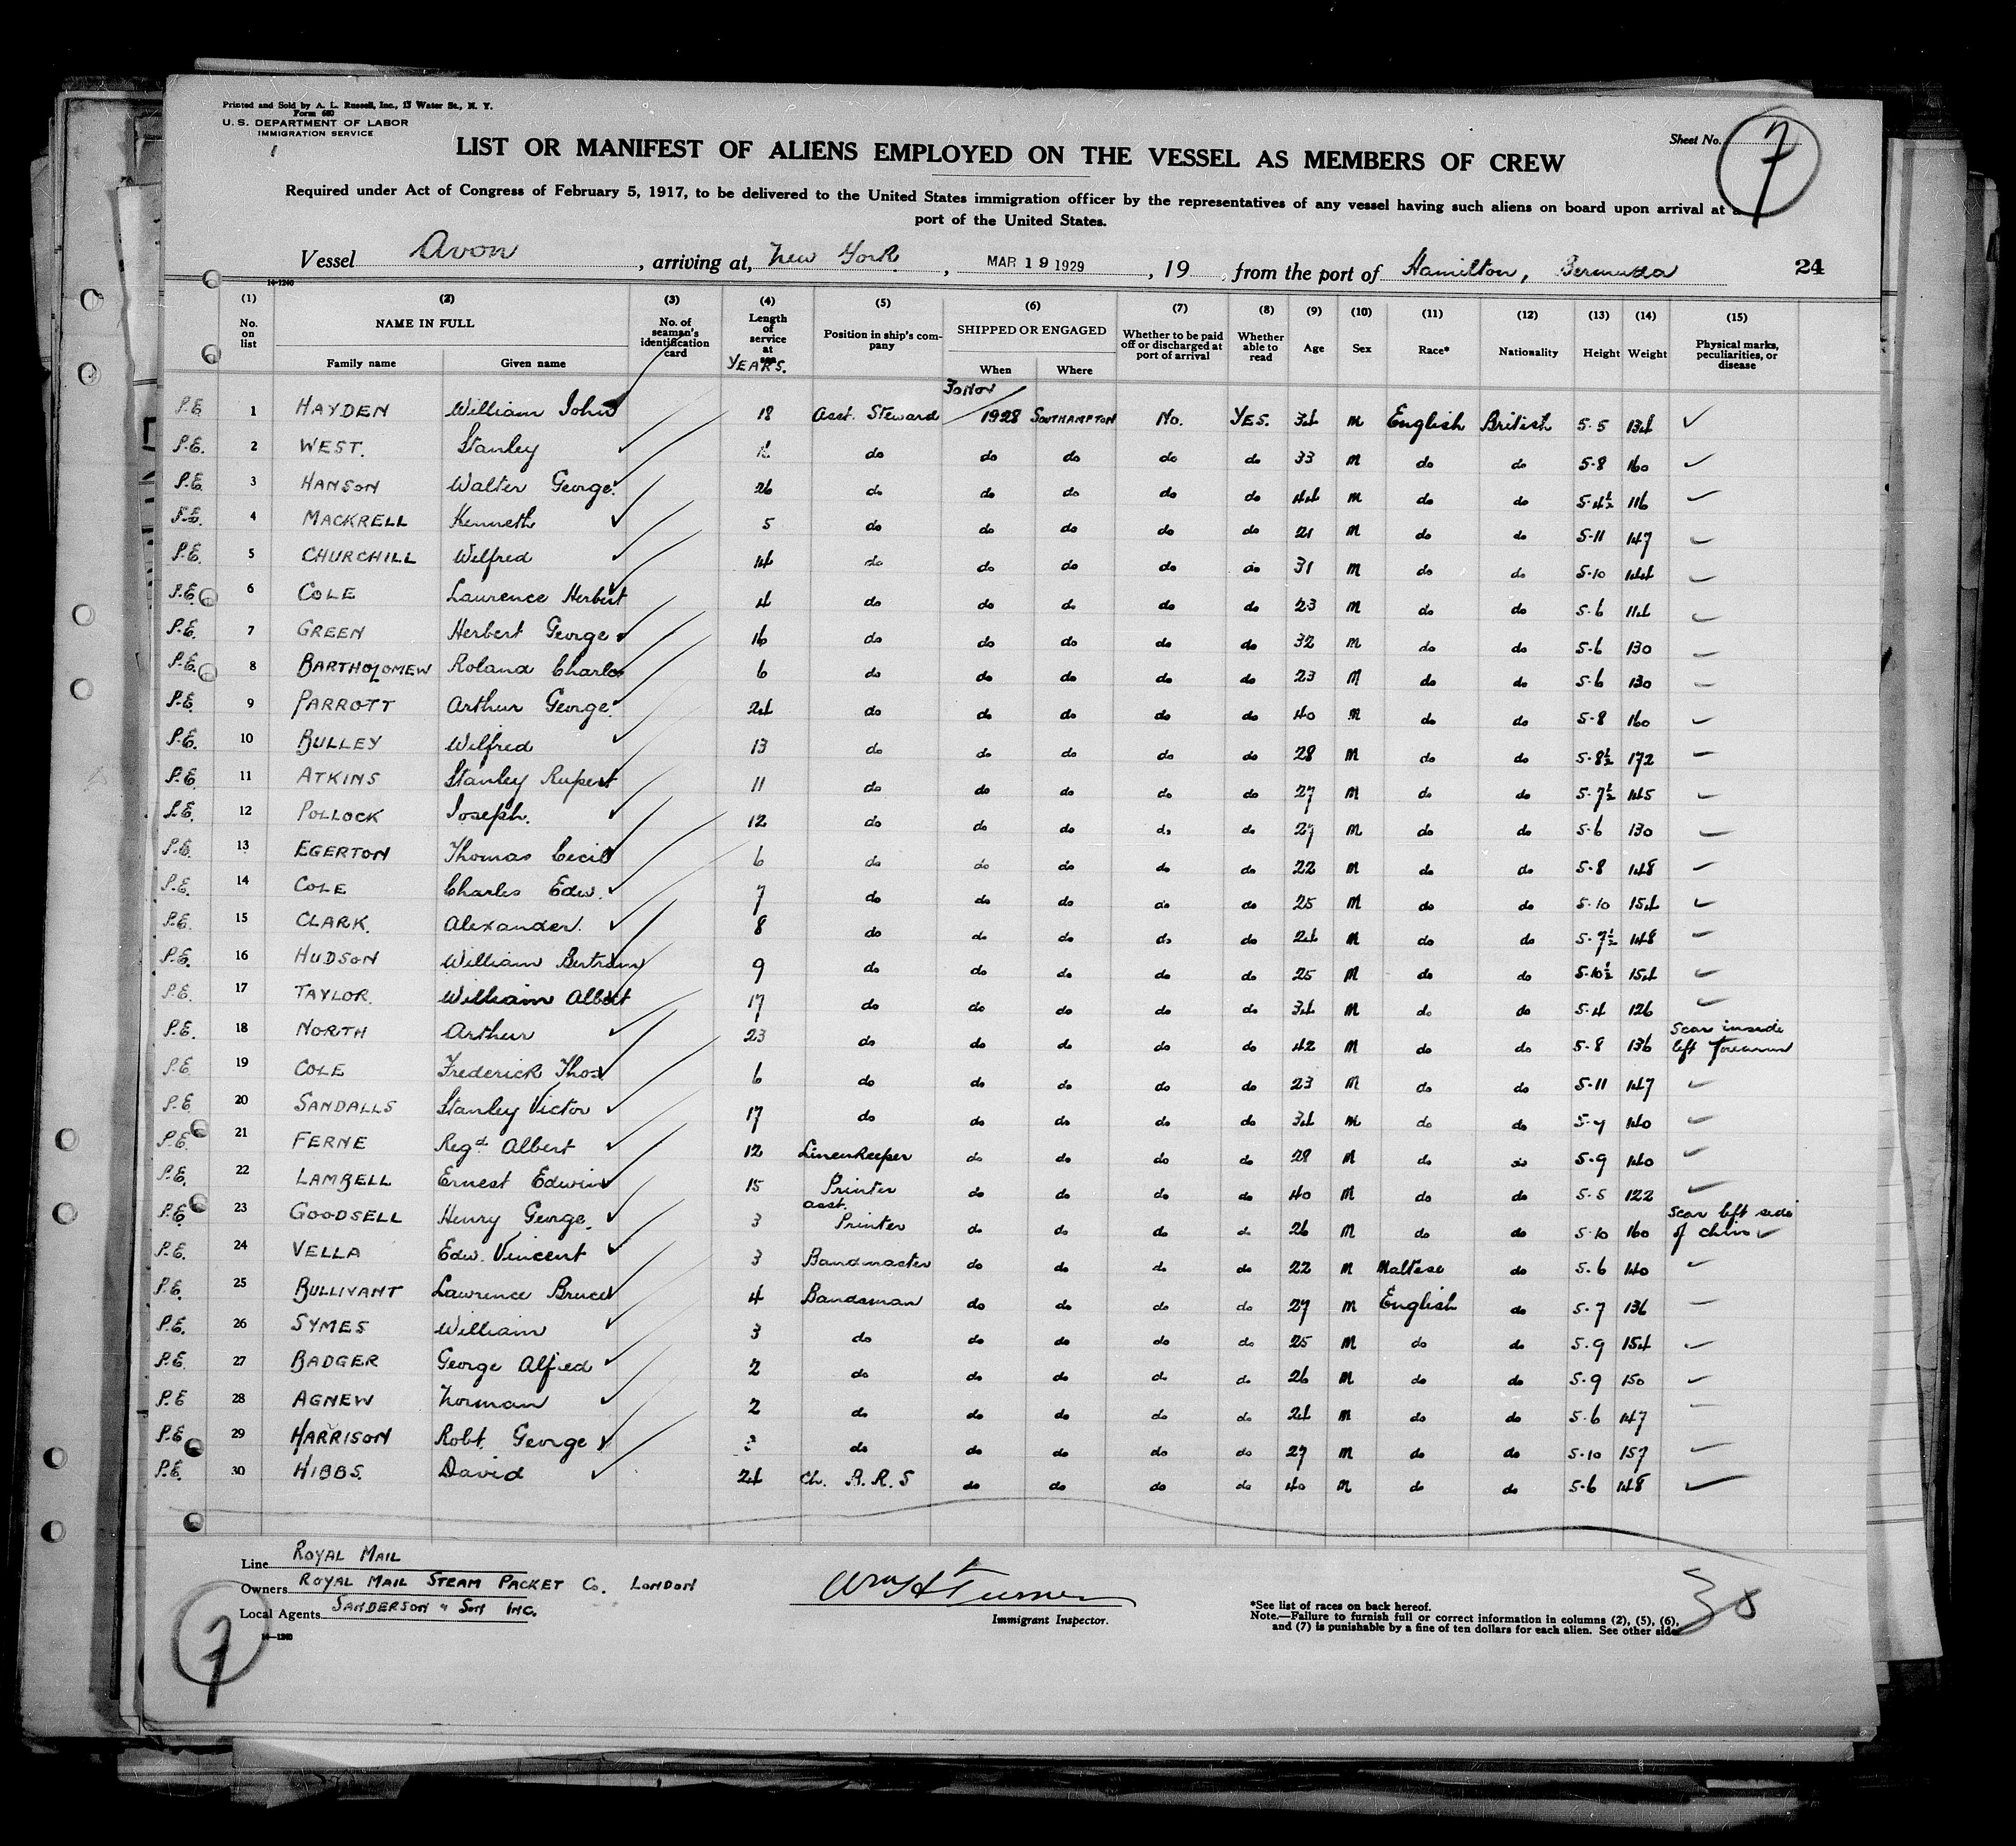 Printed and Sold by A. L. Russell, Inc., 13 Water St., N. Y.
Form 680
U. S. DEPARTMENT OF LABOR
IMMIGRATION SERVICE
Sheet No. 7
LIST OR MANIFEST OF ALIENS EMPLOYED ON THE VESSEL AS MEMBERS OF CREW
Required under Act of Congress of February 5, 1917, to be delivered to the United States immigration officer by the representatives of any vessel having such aliens on board upon arrival at a
port of the United States.
Vessel Avon, arriving at, New York, MAR 19 1929, 19 , from the port of Hamilton, Bermuda 24
14-1240
(1) (2) (3) (4) (5) (6) (7) (8) (9) (10) (11) (12) (13) (14) (15)
No. on list NAME IN FULL No. of seaman's identification card Length of service at YEARS. Position in ship's company SHIPPED OR ENGAGED Whether to be paid off or discharged at port of arrival Whether able to read Age Sex Race* Nationality Height Weight Physical marks, peculiarities, or disease
Family name Given name When Where
P.E. 1 HAYDEN William John 18 Asst. Steward 30 Nov 1928 SOUTHAMPTON No. YES. 34 M English British 5-5 134 ✓
P.E. 2 WEST. Stanley do do do do do 33 M do do 5-8 160 ✓
P.E. 3 HANSON Walter George. 26 do do do do do 44 M do do 5-4½ 116 ✓
P.E. 4 MACKRELL Kenneth 5 do do do do do 21 M do do 5-11 147 ✓
P.E. 5 CHURCHILL Wilfred 14 do do do do do 31 M do do 5-10 144 ✓
P.E. 6 COLE Laurence Herbert 4 do do do do do 23 M do do 5-6 114 ✓
P.E. 7 GREEN Herbert George 16 do do do do do 32 M do do 5-6 130 ✓
P.E. 8 BARTHOLOMEW Roland Charles 6 do do do do do 23 M do do 5-6 130 ✓
P.E. 9 PARROTT Arthur George. 24 do do do do do 40 M do do 5-8 160 ✓
P.E. 10 BULLEY Wilfred 13 do do do do do 28 M do do 5-8½ 172 ✓
P.E. 11 ATKINS Stanley Rupert 11 do do do do do 27 M do do 5-7½ 145 ✓
P.E. 12 POLLOCK Joseph. 12 do do do do do 27 M do do 5-6 130 ✓
P.E. 13 EGERTON Thomas Cecil 6 do do do do do 22 M do do 5-8 148 ✓
P.E. 14 COLE Charles Edw. 7 do do do do do 25 M do do 5-10 154 ✓
P.E. 15 CLARK. Alexander. 8 do do do do do 24 M do do 5-7½ 148 ✓
P.E. 16 HUDSON William Bertram 9 do do do do do 25 M do do 5-10½ 154 ✓
P.E. 17 TAYLOR. William Albert 17 do do do do do 34 M do do 5-4 126 ✓
P.E. 18 NORTH Arthur 23 do do do do do 42 M do do 5-8 136 Scar inside left forearm
P.E. 19 COLE Frederick Thos. 6 do do do do do 23 M do do 5-11 147 ✓
P.E. 20 SANDALLS Stanley Victor 17 do do do do do 34 M do do 5-7 140 ✓
P.E. 21 FERNE Regd. Albert 12 Linenkeeper do do do do 28 M do do 5-9 140 ✓
P.E. 22 LAMBELL Ernest Edwin 15 Printer do do do do 40 M do do 5-5 122 ✓
P.E. 23 GOODSELL Henry George. 3 asst. Printer do do do do 26 M do do 5-10 160 Scar left side of chin ✓
P.E. 24 VELLA Edw. Vincent 3 Bandmaster do do do do 22 M Maltese do 5-6 140 ✓
P.E. 25 BULLIVANT Lawrence Bruce 4 Bandsman do do do do 27 M English do 5-7 136 ✓
P.E. 26 SYMES William 3 do do do do do 25 M do do 5-9 154 ✓
P.E. 27 BADGER George Alfred 2 do do do do do 26 M do do 5-9 150 ✓
P.E 28 AGNEW Norman 2 do do do do do 24 M do do 5-6 147 ✓
P.E. 29 HARRISON Robt. George do do do do do 27 M do do 5-10 157 ✓
P.E. 30 HIBBS. David 24 Ch. B.R.S do do do do 40 M do do 5-6 148 ✓
Line ROYAL MAIL
Owners ROYAL MAIL STEAM PACKET Co. LONDON
Local Agents SANDERSON & SON INC.
14-1240
7
Wm H Turner
Immigrant Inspector.
*See list of races on back hereof.
Note.—Failure to furnish full or correct information in columns (2), (5), (6),
and (7) is punishable by a fine of ten dollars for each alien. See other side.
30